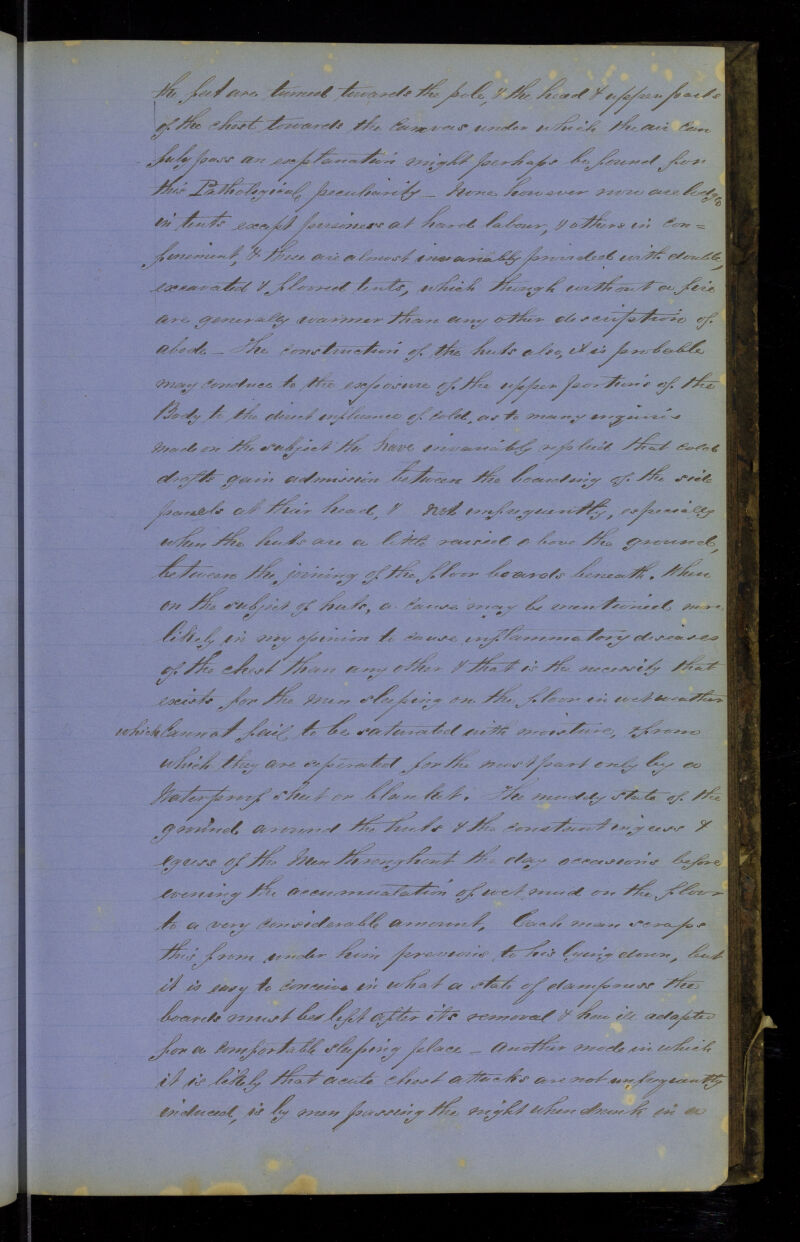 the feet are turned towards the pole, & the head & upper parts
of the chest towards the canvas under which the air can
fully pass an explanation might perhaps be found for
this Pathological peculiarity – None however now are lodged
in tents except prisoners at hard labour, & others in con=
finement, & these are almost invariably provided with double,
excavated & floored tents, which though without a fire
are generally warmer than any other description of
abode – The construction of the huts also, it is probable
may conduce to the exposure of the upper portions of the
Body to the direct influence of cold, as to many inquiries
made on the subject the have invariably replied that cold
drafts gain admission between the boarding of the side
panels at their head, & not unfrequently, especially
when the huts are a little raised above the ground,
between the joining of the floor boards beneath. When
on the subject of huts, a cause may be mentioned more
likely in my opinion to cause inflammatory diseases
of the chest than any other & that is the necessity that
exists for the men sleeping on the floor in wet weather
which cannot fail to be saturated with moisture, & from
which they are seperated for the most part only by a
Waterproof sheet or blanket. The muddy state of the
ground around the huts & the constant ingress &
egress of the Men throughout the day occasions before
evening the accumulation of wet mud on the floor
to a very considerable amount, Each man scraps
this from under him previous to his lying down, but
it is easy to conceive in what a state of dampness the
boards must be left after its removal & how ill adapted
for a comfortable sleeping place – another mode in which
it is likely that acute chest attacks are not unfrequently
induced, is by men passing the night when drunk in a